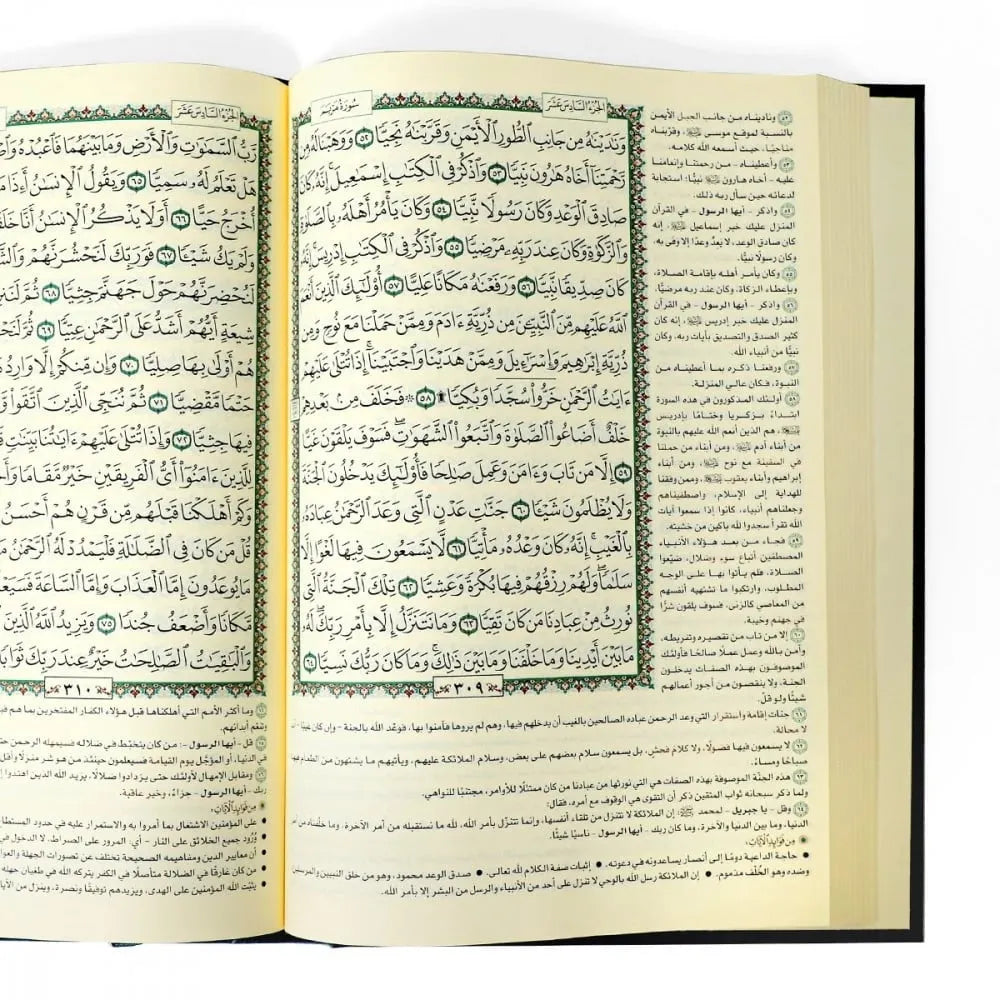 سُورَةُ مَرْيَم
الجُزْءُ السَّادِسَ عَشَرَ
وَنَٰدَيْنَٰهُ مِن جَانِبِ ٱلطُّورِ ٱلْأَيْمَنِ وَقَرَّبْنَٰهُ نَجِيًّا ٥٢ وَوَهَبْنَا لَهُۥ مِن
رَّحْمَتِنَآ أَخَاهُ هَٰرُونَ نَبِيًّا ٥٣ وَٱذْكُرْ فِى ٱلْكِتَٰبِ إِسْمَٰعِيلَ إِنَّهُۥ كَانَ
صَادِقَ ٱلْوَعْدِ وَكَانَ رَسُولًا نَّبِيًّا ٥٤ وَكَانَ يَأْمُرُ أَهْلَهُۥ بِٱلصَّلَوٰةِ
وَٱلزَّكَوٰةِ وَكَانَ عِندَ رَبِّهِۦ مَرْضِيًّا ٥٥ وَٱذْكُرْ فِى ٱلْكِتَٰبِ إِدْرِيسَ إِنَّهُۥ
كَانَ صِدِّيقًا نَّبِيًّا ٥٦ وَرَفَعْنَٰهُ مَكَانًا عَلِيًّا ٥٧ أُو۟لَٰٓئِكَ ٱلَّذِينَ أَنْعَمَ
ٱللَّهُ عَلَيْهِم مِّنَ ٱلنَّبِيِّۦنَ مِن ذُرِّيَّةِ ءَادَمَ وَمِمَّنْ حَمَلْنَا مَعَ نُوحٍ وَمِن
ذُرِّيَّةِ إِبْرَٰهِيمَ وَإِسْرَٰٓءِيلَ وَمِمَّنْ هَدَيْنَا وَٱجْتَبَيْنَآ إِذَا تُتْلَىٰ عَلَيْهِمْ
ءَايَٰتُ ٱلرَّحْمَٰنِ خَرُّوا۟ سُجَّدًا وَبُكِيًّا ۩ ٥٨ ۞ فَخَلَفَ مِنۢ بَعْدِهِمْ
خَلْفٌ أَضَاعُوا۟ ٱلصَّلَوٰةَ وَٱتَّبَعُوا۟ ٱلشَّهَوَٰتِ فَسَوْفَ يَلْقَوْنَ غَيًّا
٥٩ إِلَّا مَن تَابَ وَءَامَنَ وَعَمِلَ صَٰلِحًا فَأُو۟لَٰٓئِكَ يَدْخُلُونَ ٱلْجَنَّةَ
وَلَا يُظْلَمُونَ شَيْـًٔا ٦٠ جَنَّٰتِ عَدْنٍ ٱلَّتِى وَعَدَ ٱلرَّحْمَٰنُ عِبَادَهُۥ
بِٱلْغَيْبِ إِنَّهُۥ كَانَ وَعْدُهُۥ مَأْتِيًّا ٦١ لَّا يَسْمَعُونَ فِيهَا لَغْوًا إِلَّا
سَلَٰمًا وَلَهُمْ رِزْقُهُمْ فِيهَا بُكْرَةً وَعَشِيًّا ٦٢ تِلْكَ ٱلْجَنَّةُ ٱلَّتِى
نُورِثُ مِنْ عِبَادِنَا مَن كَانَ تَقِيًّا ٦٣ وَمَا نَتَنَزَّلُ إِلَّا بِأَمْرِ رَبِّكَ لَهُۥ
مَا بَيْنَ أَيْدِينَا وَمَا خَلْفَنَا وَمَا بَيْنَ ذَٰلِكَ وَمَا كَانَ رَبُّكَ نَسِيًّا ٦٤
٣٠٩
٥٢ وناديناه من جانب الجبل الأيمن
بالنسبة لموقع موسى ﷺ، وقربناه
مناجيًا، حيث أسمعه الله كلامه.
٥٣ وأعطيناه - من رحمتنا وإنعامنا
عليه - أخاه هارون ﷺ نبيًّا؛ استجابة
لدعائه حين سأل ربه ذلك.
٥٤ واذكر - أيها الرسول - في القرآن
المنزل عليك خبر إسماعيل ﷺ، إنه
كان صادق الوعد، لا يعدُ وعدًا إلا وفى به،
وكان رسولًا نبيًّا.
٥٥ وكان يأمر أهله بإقامة الصلاة،
وبإعطاء الزكاة، وكان عند ربه مرضيًّا.
٥٦ واذكر - أيها الرسول - في القرآن
المنزل عليك خبر إدريس ﷺ، إنه كان
كثير الصدق والتصديق بآيات ربه، وكان
نبيًّا من أنبياء الله.
٥٧ ورفعنا ذكره بما أعطيناه من
النبوة، فكان عالي المنزلة.
٥٨ أولئك المذكورون في هذه السورة
ابتداءً بزكريا وختامًا بإدريس
ﷺ، هم الذين أنعم الله عليهم بالنبوة
من أبناء آدم ﷺ، ومن أبناء من حملنا
في السفينة مع نوح ﷺ، ومن أبناء
إبراهيم وأبناء يعقوب ﷺ، وممن وفقنا
للهداية إلى الإسلام، واصطفيناهم
وجعلناهم أنبياء، كانوا إذا سمعوا آيات
الله تقرأ سجدوا لله باكين من خشيته.
٥٩ فجاء من بعد هؤلاء الأنبياء
المصطفين أتباع سوء وضلال، ضيّعوا
الصلاة، فلم يأتوا بها على الوجه
المطلوب، وارتكبوا ما تشتهيه أنفسهم
من المعاصي كالزنى، فسوف يلقون شرًّا
في جهنم وخيبة.
٦٠ إلا من تاب من تقصيره وتفريطه،
وآمن بالله وعمل عملًا صالحًا فأولئك
الموصوفون بهذه الصفات يدخلون
الجنة، ولا ينقصون من أجور أعمالهم
شيئًا ولو قلّ.
٦١ جنات إقامة واستقرار التي وعد الرحمن عباده الصالحين بالغيب أن يدخلهم فيها، وهم لم يروها فآمنوا بها، فوعْد الله بالجنة - وإن كان غيبًا -
لا محالة.
٦٢ لا يسمعون فيها فضولًا، ولا كلام فحش، بل يسمعون سلام بعضهم على بعض، وسلام الملائكة عليهم، ويأتيهم ما يشتهون من الطعام فيها
صباحًا ومساءً.
٦٣ هذه الجنّة الموصوفة بهذه الصفات هي التي نورثها من عبادنا من كان ممتثلًا للأوامر، مجتنبًا للنواهي.
ولما ذكر سبحانه ثواب المتقين ذكر أن التقوى هي الوقوف مع أمره، فقال:
٦٤ وقل - يا جبريل - لمحمد ﷺ: إن الملائكة لا تتنزل من تلقاء أنفسها، وإنما تتنزّل بأمر الله، لله ما نستقبله من أمر الآخرة، وما خلّفناه من أمر
الدنيا، وما بين الدنيا والآخرة، وما كان ربك - أيها الرسول - ناسيًا شيئًا.
مِن فَوَائِدِ الآيَاتِ:
• حاجة الداعية دومًا إلى أنصار يساعدونه في دعوته. • إثبات صفة الكلام لله تعالى. • صدق الوعد محمود، وهو من خلق النبيين والمرسلين،
وضده وهو الخُلْف مذموم. • إن الملائكة رسل الله بالوحي لا تنزل على أحد من الأنبياء والرسل من البشر إلا بأمر الله.
الجُزْءُ السَّادِسَ عَشَرَ
رَّبُّ ٱلسَّمَٰوَٰتِ وَٱلْأَرْضِ وَمَا بَيْنَهُمَا فَٱعْبُدْهُ
هَلْ تَعْلَمُ لَهُۥ سَمِيًّا ٦٥ وَيَقُولُ ٱلْإِنسَٰنُ أَءِذَا مَا
أُخْرَجُ حَيًّا ٦٦ أَوَلَا يَذْكُرُ ٱلْإِنسَٰنُ أَنَّا
وَلَمْ يَكُ شَيْـًٔا ٦٧ فَوَرَبِّكَ لَنَحْشُرَنَّهُمْ
لَنُحْضِرَنَّهُمْ حَوْلَ جَهَنَّمَ جِثِيًّا ٦٨ ثُمَّ
شِيعَةٍ أَيُّهُمْ أَشَدُّ عَلَى ٱلرَّحْمَٰنِ عِتِيًّا ٦٩ ثُمَّ
هُمْ أَوْلَىٰ بِهَا صِلِيًّا ٧٠ وَإِن مِّنكُمْ إِلَّا
حَتْمًا مَّقْضِيًّا ٧١ ثُمَّ نُنَجِّى ٱلَّذِينَ ٱتَّقَوا۟
فِيهَا جِثِيًّا ٧٢ وَإِذَا تُتْلَىٰ عَلَيْهِمْ ءَايَٰتُنَا بَيِّنَٰتٍ
لِلَّذِينَ ءَامَنُوٓا۟ أَىُّ ٱلْفَرِيقَيْنِ خَيْرٌ مَّقَامًا
وَكَمْ أَهْلَكْنَا قَبْلَهُم مِّن قَرْنٍ هُمْ أَحْسَنُ
قُلْ مَن كَانَ فِى ٱلضَّلَٰلَةِ فَلْيَمْدُدْ لَهُ ٱلرَّحْمَٰنُ
مَا يُوعَدُونَ إِمَّا ٱلْعَذَابَ وَإِمَّا ٱلسَّاعَةَ
مَّكَانًا وَأَضْعَفُ جُندًا ٧٥ وَيَزِيدُ ٱللَّهُ ٱلَّذِينَ
وَٱلْبَٰقِيَٰتُ ٱلصَّٰلِحَٰتُ خَيْرٌ عِندَ رَبِّكَ ثَوَابًا
٣١٠
وما أكثر الأمم التي أهلكناها قبل هؤلاء الكفار المفتخرين بما هم فيه
وتنعم أبدانهم.
قل - أيها الرسول -: من كان يتخبّط في ضلاله فسيمهله الرحمن
في الدنيا، أو المؤجَّل يوم القيامة فسيعلمون حينئذ من هو شر منزلًا
ومقابل الإمهال لأولئك حتى يزدادوا ضلالًا، يزيد الله الذين اهتدوا
ربك - أيها الرسول - جزاءً، وخير عاقبة.
مِن فَوَائِدِ الآيَاتِ:
• على المؤمنين الاشتغال بما أمروا به والاستمرار عليه في حدود
• وُرُود جميع الخلائق على النار - أي: المرور على الصراط، لا الدخول في
• أن معايير الدين ومفاهيمه الصحيحة تختلف عن تصورات الجهلة
• من كان غارقًا في الضلالة متأصلًا في الكفر يتركه الله في طغيان جهله
• يثبّت الله المؤمنين على الهدى، ويزيدهم توفيقًا ونصرة، وينزل من